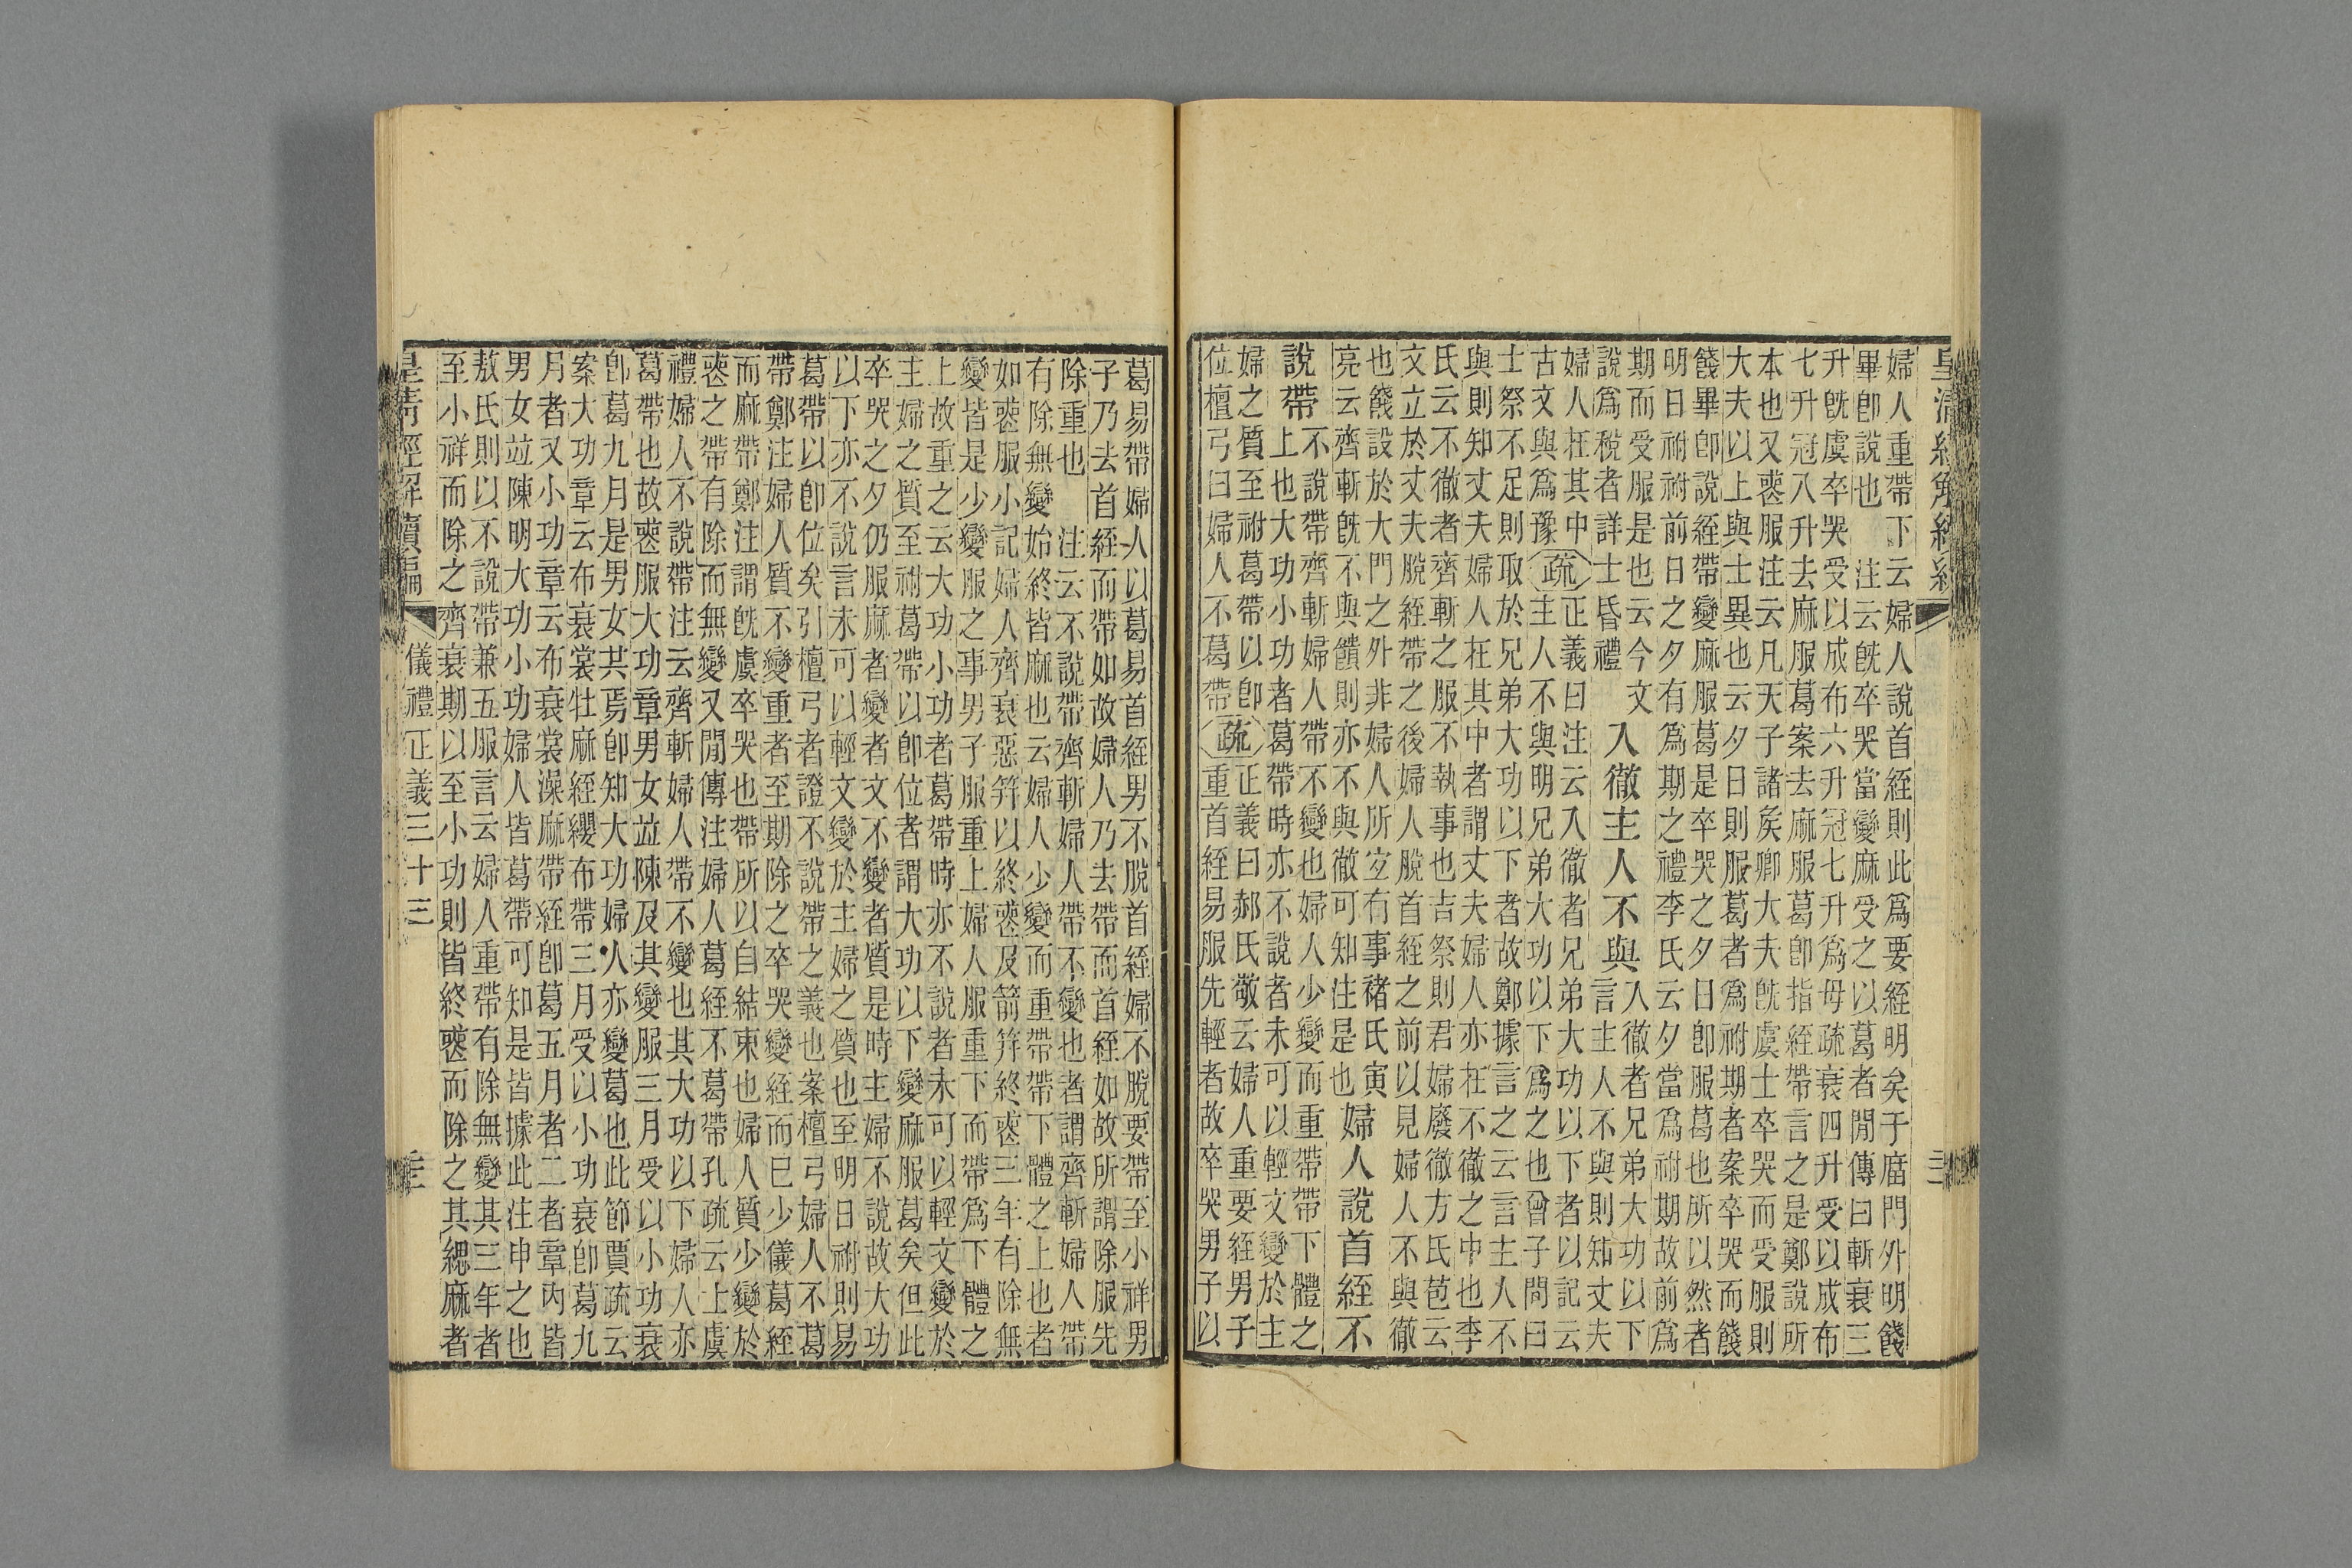 皇清經解續編 三
婦人重帶下云婦人說首絰則此爲要絰明矣于廟門外明餞
畢卽說也 注云旣卒哭當變麻受之以葛者閒傳曰斬衰三
升旣虞卒哭受以成布六升冠七升爲母疏衰四升受以成布
七升冠八升去麻服葛案去麻服葛卽指絰帶言之是鄭說所
本也又喪服注云凡天子諸矦卿大夫旣虞士卒哭而受服則
大夫以上與士異也云夕日則服葛者爲祔期者案卒哭而餞
餞畢卽說絰帶變麻服葛是卒哭之夕日卽服葛也所以然者
明日祔祔前日之夕有爲期之禮李氏云夕當爲祔期故前爲
期而受服是也云今文
說爲稅者詳士昏禮
入徹主人不與
入徹者兄弟大功以下
言主人不與則知丈夫
婦人在其中
古文與爲豫
疏
正義曰注云入徹者兄弟大功以下者以記云
主人不與明兄弟大功以下爲之也曾子問曰
士祭不足則取於兄弟大功以下者故鄭據言之云言主人不
與則知丈夫婦人在其中者謂丈夫婦人亦在不徹之中也李
氏云不徹者齊斬之服不執事也吉祭則君婦廢徹方氏苞云
文立於丈夫脫絰帶之後婦人脫首絰之前以見婦人不與徹
也餞設於大門之外非婦人所宜有事褚氏寅
亮云齊斬旣不與饋則亦不與徹可知注是也
婦人說首絰不
說帶
不說帶齊斬婦人帶不變也婦人少變而重帶帶下體之
上也大功小功者葛帶時亦不說者未可以輕文變於主
婦之質至祔葛帶以卽
位檀弓曰婦人不葛帶
疏
正義曰郝氏敬云婦人重要絰男子
重首絰易服先輕者故卒哭男子以
葛易帶婦人以葛易首絰男不脫首絰婦不脫要帶至小祥男
子乃去首絰而帶如故婦人乃去帶而首絰如故所謂除服先
除重也 注云不說帶齊斬婦人帶不變也者謂齊斬婦人帶
有除無變始終皆麻也云婦人少變而重帶帶下體之上也者
如喪服小記婦人齊衰惡笄以終喪及箭笄終喪三年有除無
變皆是少變服之事男子服重上婦人服重下而帶爲下體之
上故重之云大功小功者葛帶時亦不說者未可以輕文變於
主婦之質至祔葛帶以卽位者謂大功以下變麻服葛矣但此
卒哭之夕仍服麻者變者文不變者質是時主婦不說故大功
以下亦不說言未可以輕文變於主婦之質也至明日祔則易
葛帶以卽位矣引檀弓者證不說帶之義也案檀弓婦人不葛
帶鄭注婦人質不變重者至期除之卒哭變絰而已少儀葛絰
而麻帶鄭注謂旣虞卒哭也帶所以自結束也婦人質少變於
喪之帶有除而無變又閒傳注婦人葛絰不葛帶孔疏云上虞
禮婦人不說帶注云齊斬婦人帶不變也其大功以下婦人亦
葛帶也故喪服大功章男女竝陳及其變服三月受以小功衰
卽葛九月是男女其焉卽知大功婦人亦變葛也此節賈疏云
案大功章云布衰裳牡麻絰纓布帶三月受以小功衰卽葛九
月者又小功章云布衰裳澡麻帶絰卽葛五月者二者章內皆
男女竝陳明大功小功婦人皆葛帶可知是皆據此注申之也
敖氏則以不說帶兼五服言云婦人重帶有除無變其三年者
至小祥而除之齊衰期以至小功則皆終喪而除之其緦麻者
皇清經解續編 儀禮正義三十三